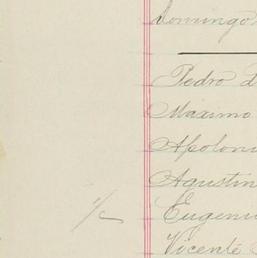 Domingo
Pedro d
Maximo
Apoloni
Agustin
Eugeni
Vicente